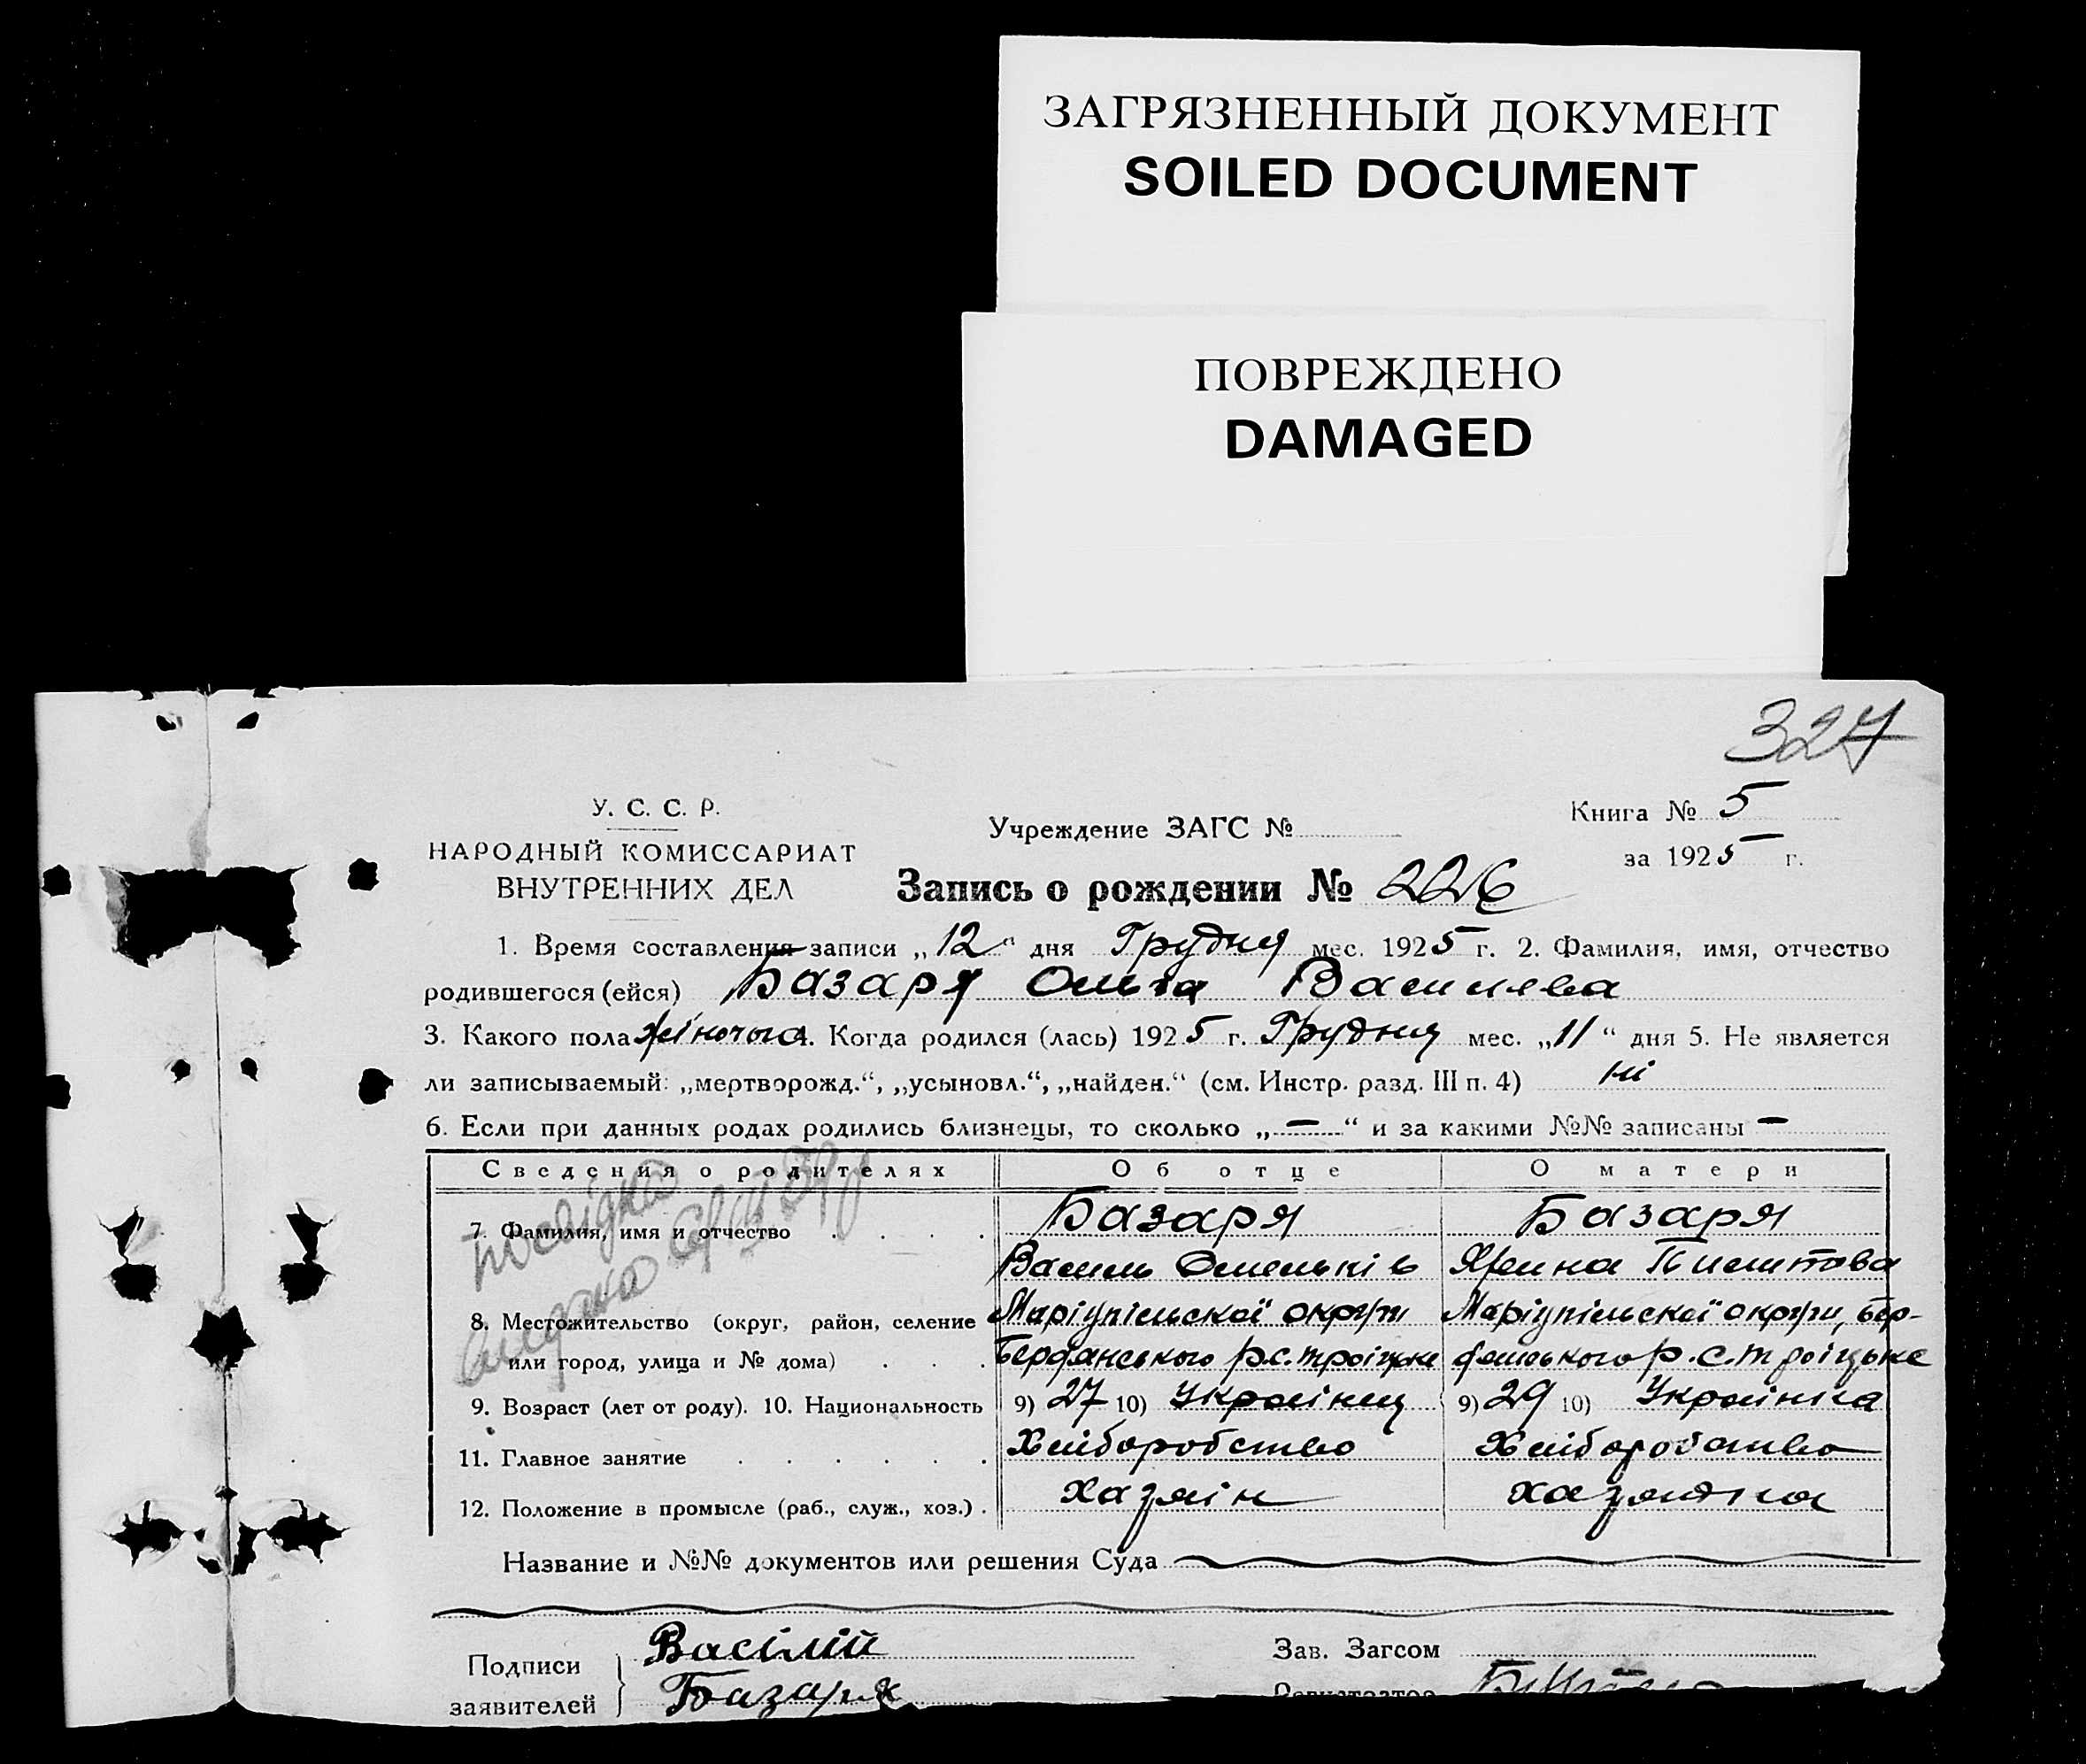 ЗАГРЯЗНЕННЫЙ ДОКУМЕНТ
SOILED DOCUMENT
ПОВРЕЖДЕНО
DAMAGED
327
У. С. С. Р.
НАРОДНЫЙ КОМИССАРИАТ
ВНУТРЕННИХ ДЕЛ
Учреждение ЗАГС №
Книга № 5
за 1925 г.
Запись о рождении № 226
1. Время составления записи „12“ дня Грудня мес. 1925 г. 2. Фамилия, имя, отчество
родившегося (ейся) Базаря Ольга Василева
3. Какого пола жіночого. Когда родился (лась) 1925 г. Грудня мес. „11“ дня 5. Не является
ли записываемый: „мертворожд.“, „усыновл.“, „найден.“ (см. Инстр. разд. III п. 4) ні
6. Если при данных родах родились близнецы, то сколько „—“ и за какими №№ записаны —
Сведения о родителях Об отце О матери
7. Фамилия, имя и отчество Базаря Базаря
Василь Омельків Ярина
8. Местожительство (округ, район, селение Маріупільскої округи Маріупільскої округи, Бер-
или город, улица и № дома) Бердянського р. с. Троіцьке дянського р. с. Троіцьке
9. Возраст (лет от роду). 10. Национальность 9) 27 10) Украінец 9) 29 10) Украінка
11. Главное занятие Хліборобство Хліборобство
12. Положение в промысле (раб., служ., хоз.) Хазяін хазяйка
Название и №№ документов или решения Суда
Подписи заявителей Василій
Базаря
Зав. Загсом